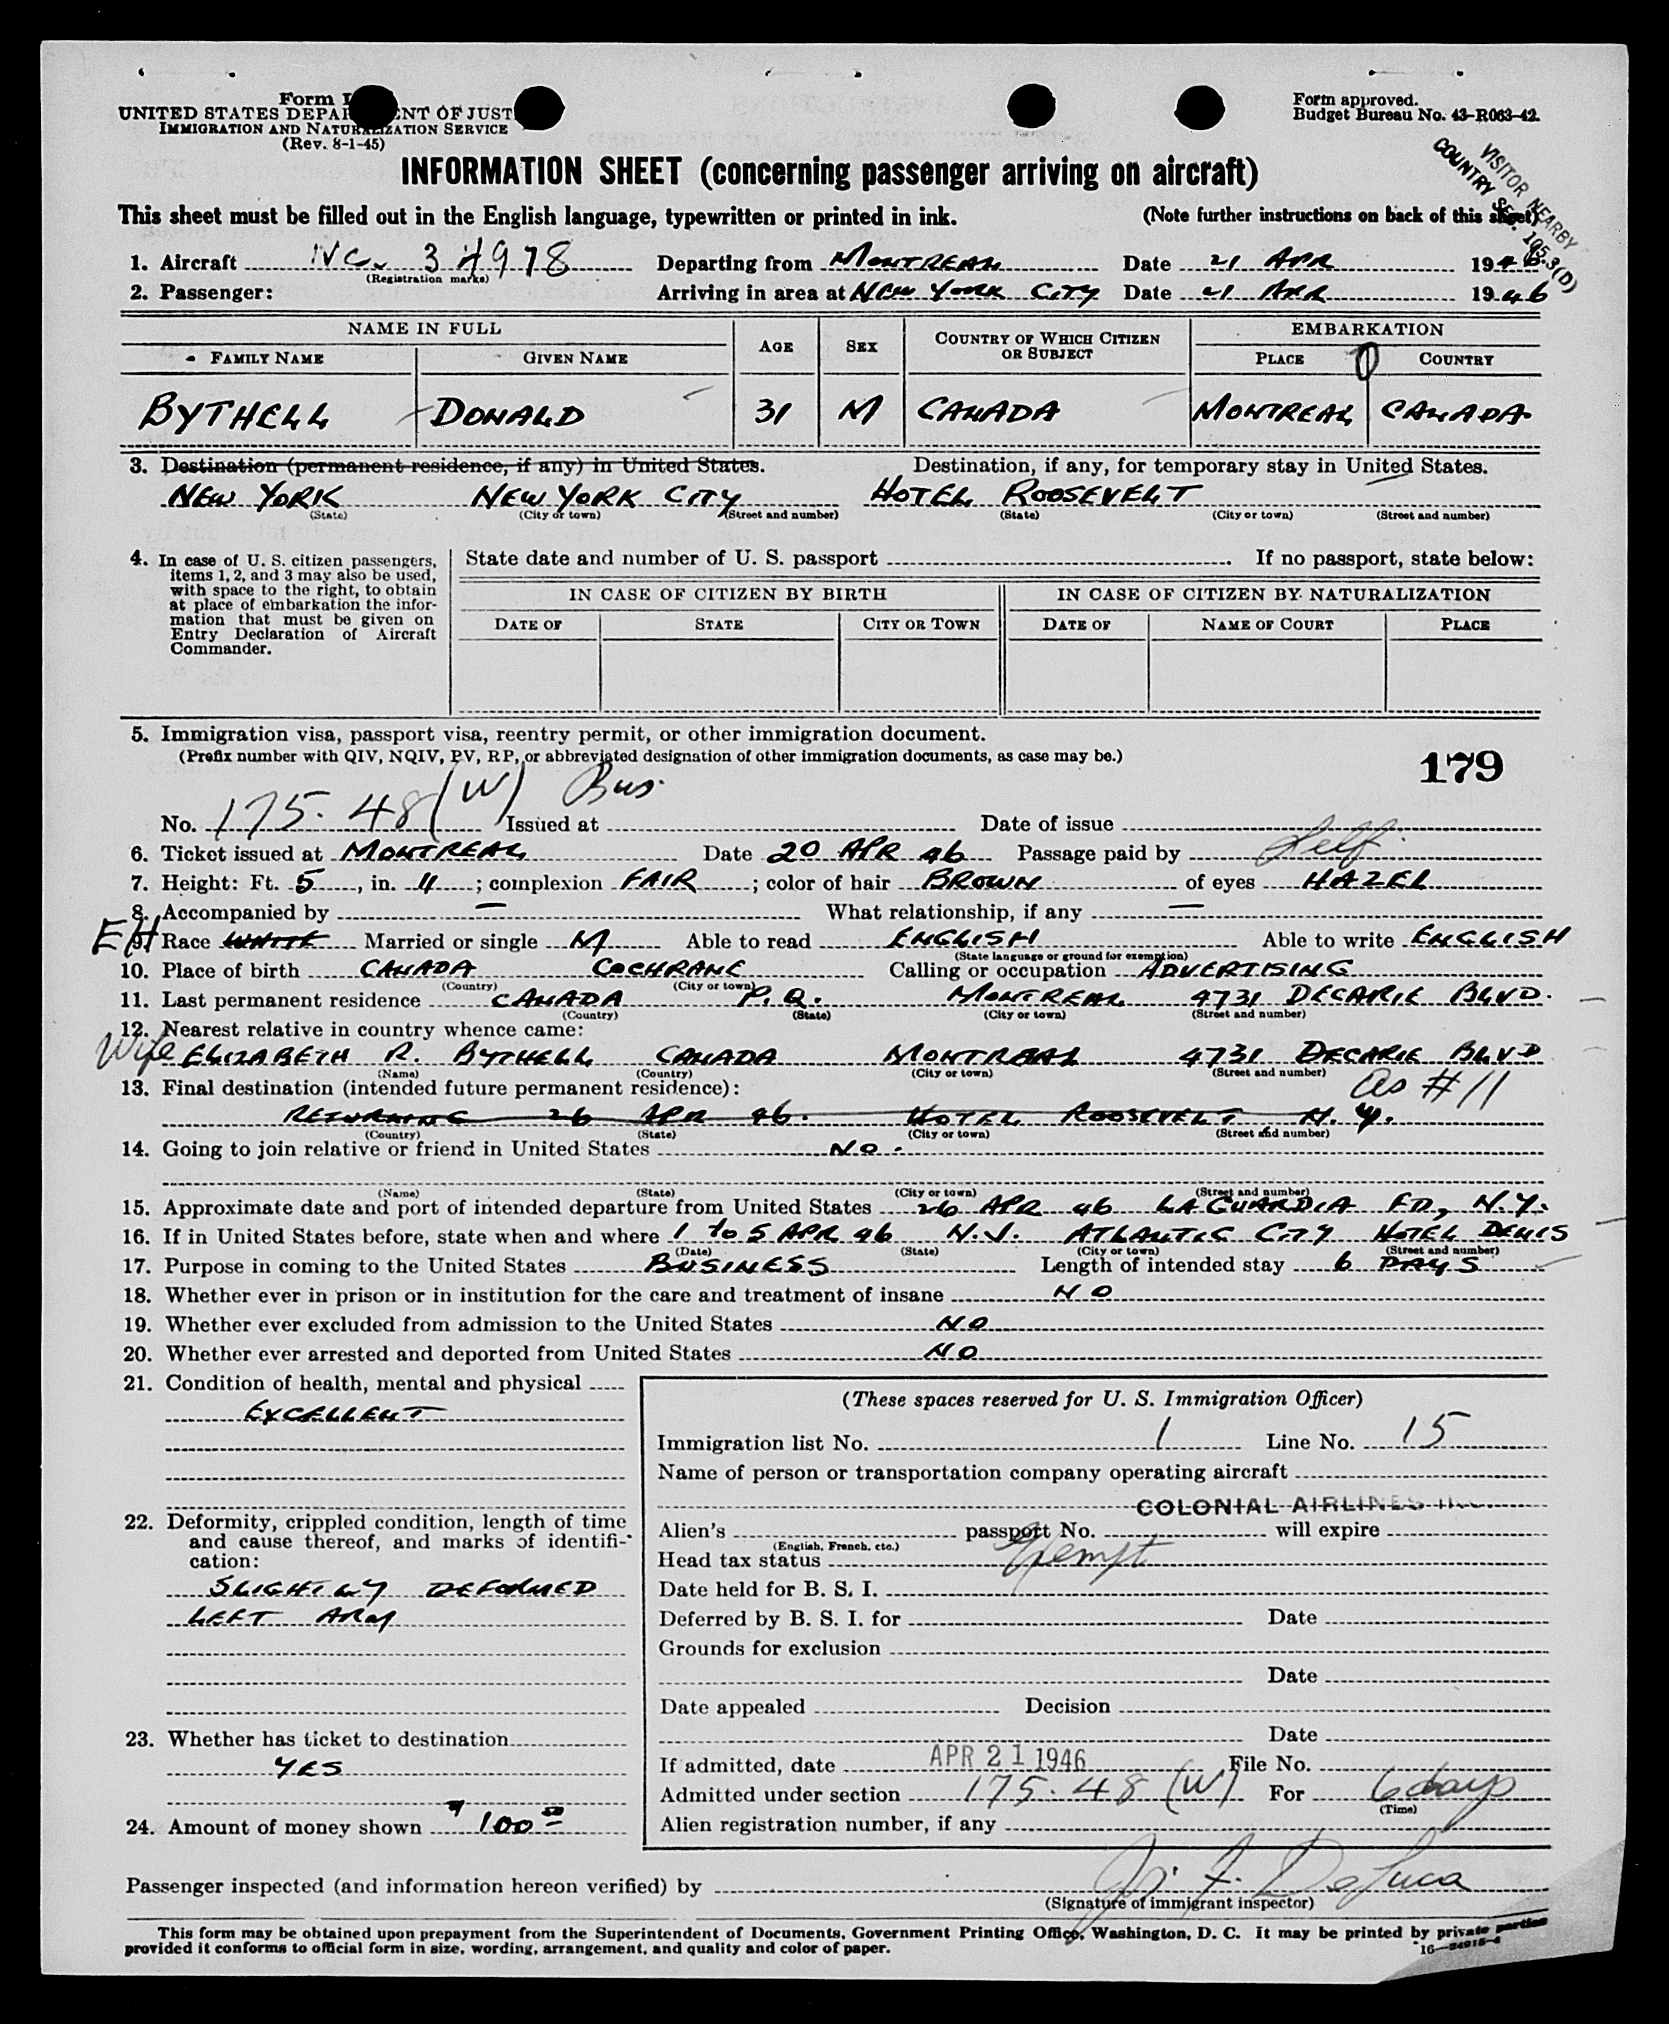 Form I
UNITED STATES DEPARTMENT OF JUSTICE
IMMIGRATION AND NATURALIZATION SERVICE
(Rev. 8-1-45)
Form approved.
Budget Bureau No. 43-R063-42.
VISITOR NEARBY
COUNTRY SEC. 105.3(D)
INFORMATION SHEET (concerning passenger arriving on aircraft)
This sheet must be filled out in the English language, typewritten or printed in ink. (Note further instructions on back of this sheet)
1. Aircraft NC. 34978 Departing from MONTREAL Date 21 APR 1946
(Registration marks)
2. Passenger: Arriving in area at NEW YORK CITY Date 21 APR 1946
NAME IN FULL AGE SEX COUNTRY OF WHICH CITIZEN OR SUBJECT EMBARKATION
FAMILY NAME GIVEN NAME PLACE COUNTRY
BYTHELL DONALD 31 M CANADA MONTREAL CANADA
3. Destination (permanent residence, if any) in United States. Destination, if any, for temporary stay in United States.
NEW YORK NEW YORK CITY HOTEL ROOSEVELT
(State) (City or town) (Street and number) (State) (City or town) (Street and number)
4. In case of U. S. citizen passengers, items 1, 2, and 3 may also be used, with space to the right, to obtain at place of embarkation the information that must be given on Entry Declaration of Aircraft Commander.
State date and number of U. S. passport If no passport, state below:
IN CASE OF CITIZEN BY BIRTH IN CASE OF CITIZEN BY NATURALIZATION
DATE OF STATE CITY OR TOWN DATE OF NAME OF COURT PLACE
5. Immigration visa, passport visa, reentry permit, or other immigration document.
(Prefix number with QIV, NQIV, PV, RP, or abbreviated designation of other immigration documents, as case may be.)
179
No. 175.48(W) Bus. Issued at Date of issue
6. Ticket issued at MONTREAL Date 20 APR 46 Passage paid by Self.
7. Height: Ft. 5, in. 11; complexion FAIR; color of hair BROWN of eyes HAZEL
8. Accompanied by — What relationship, if any —
EH
9. Race WHITE Married or single M Able to read ENGLISH Able to write ENGLISH
(State language or ground for exemption)
10. Place of birth CANADA COCHRANE Calling or occupation ADVERTISING
(Country) (City or town)
11. Last permanent residence CANADA P.Q. MONTREAL 4731 DECARIE BLVD.
(Country) (State) (City or town) (Street and number)
12. Nearest relative in country whence came:
Wife ELIZABETH R. BYTHELL CANADA MONTREAL 4731 DECARIE BLVD
(Name) (Country) (City or town) (Street and number)
13. Final destination (intended future permanent residence): as #11
RETURNING 26 APR 46. HOTEL ROOSEVELT N.Y.
(Country) (State) (City or town) (Street and number)
14. Going to join relative or friend in United States NO.
(Name) (State) (City or town) (Street and number)
15. Approximate date and port of intended departure from United States 26 APR 46 LA GUARDIA FD, N.Y.
16. If in United States before, state when and where 1 to 5 APR 46 N.J. ATLANTIC CITY HOTEL DENIS
(Date) (State) (City or town) (Street and number)
17. Purpose in coming to the United States BUSINESS Length of intended stay 6 DAYS
18. Whether ever in prison or in institution for the care and treatment of insane NO
19. Whether ever excluded from admission to the United States NO
20. Whether ever arrested and deported from United States NO
21. Condition of health, mental and physical
EXCELLENT
22. Deformity, crippled condition, length of time and cause thereof, and marks of identification:
SLIGHTLY DEFORMED
LEFT ARM
23. Whether has ticket to destination
YES
24. Amount of money shown $100.00
(These spaces reserved for U. S. Immigration Officer)
Immigration list No. 1 Line No. 15
Name of person or transportation company operating aircraft
COLONIAL AIRLINES INC.
Alien's passport No. will expire
(English, French, etc.)
Head tax status Exempt
Date held for B. S. I.
Deferred by B. S. I. for Date
Grounds for exclusion
Date
Date appealed Decision
Date
If admitted, date APR 21 1946 File No.
Admitted under section 175.48 (W) For 6 days
(Time)
Alien registration number, if any
Passenger inspected (and information hereon verified) by J. F. DeLuca
(Signature of immigrant inspector)
This form may be obtained upon prepayment from the Superintendent of Documents, Government Printing Office, Washington, D. C. It may be printed by private parties
provided it conforms to official form in size, wording, arrangement, and quality and color of paper.